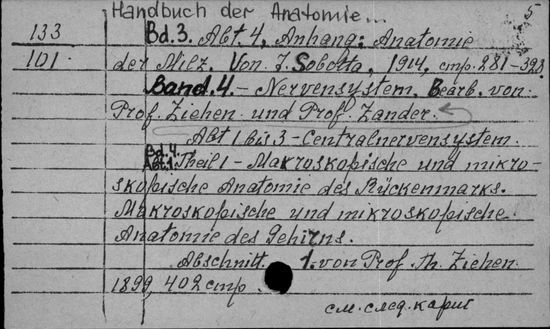 Handbuch der Anatomie... 5
133 Bd.3. Abt. 4, Anhang: Anatomie
101 der Milz. Von J. Sobotta, 1914, стр. 281-323
Band. 4. - Nervensystem. Bearb. von
Prof. Ziehen und Prof. Zander.
Abt 1 bis 3 - Centralnervensystem.
Bd.4.
Abt.1. Theil 1 - Makroskopische und mikro-
skopische Anatomie des Rückenmarks.
Makroskopische und mikroskopische
Anatomie des Gehirns.
Abschnitt. 1. von Prof. Th. Ziehen
1899, 402 стр.
см. след. карт